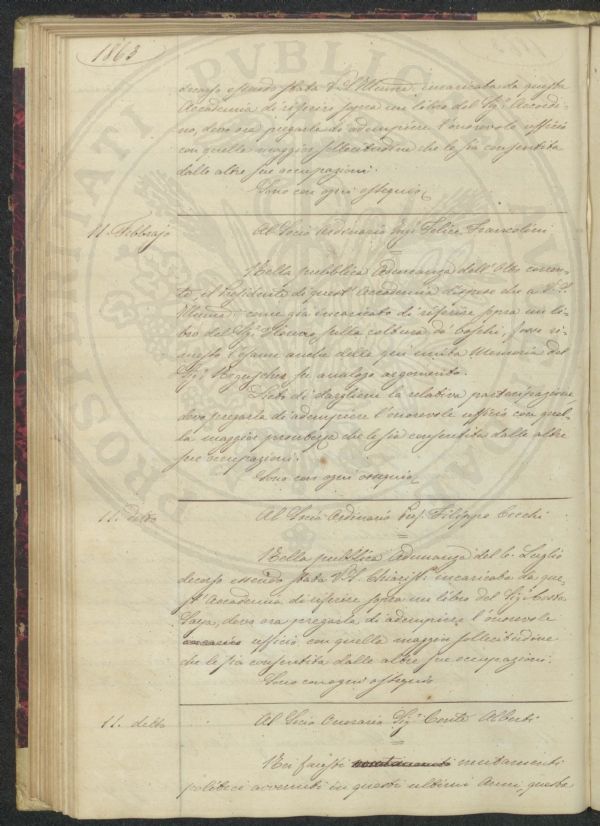 1863
decorso essendo stata V. S. Illma incaricata da questa
Accademia di riferire sopra un libro del Sig. Accordi-
no, devo ora pregarla di adempiere l'onorevole ufficio
con quella maggior sollecitudine che le sia consentita
dalle altre sue occupazioni.
Sono con ogni ossequio
11. Febbrajo
Al Socio Ordinario Felice Francolini
Nella pubblica Adunanza dell' corren-
te, il Presidente di quest' Accademia dispose che a V. S.
Illma, come già incaricato di riferire sopra un li-
bro del Sig. sulla coltura di boschi, fosse ri-
messo l'esame anche della qui unita Memoria del
Sig. su analogo argomento.
Lieto di dargliene la relativa partecipazione
devo pregarla di adempiere l'onorevole ufficio con quel-
la maggior prontezza che le sia consentita dalle altre
sue occupazioni.
Sono con ogni ossequio
11. detto
Al Socio Ordinario Filippo Cecchi
Nella pubblica Adunanza del 6. Luglio
decorso essendo stata V. S. Chiariss. incaricata da que-
st' Accademia di riferire sopra un libro del Sig. Costa
Saya, devo ora pregarla di adempiere l'onorevole
ufficio con quella maggior sollecitudine
che le sia consentita dalle altre sue occupazioni.
Sono con ogni ossequio
11. detto
Al Socio Onorario Sig. Conte Alberti
Nei fausti mutamenti
politici avvenuti in questi ultimi Anni, questa
PROSPERITATI PVBLICAE AVGENDAE